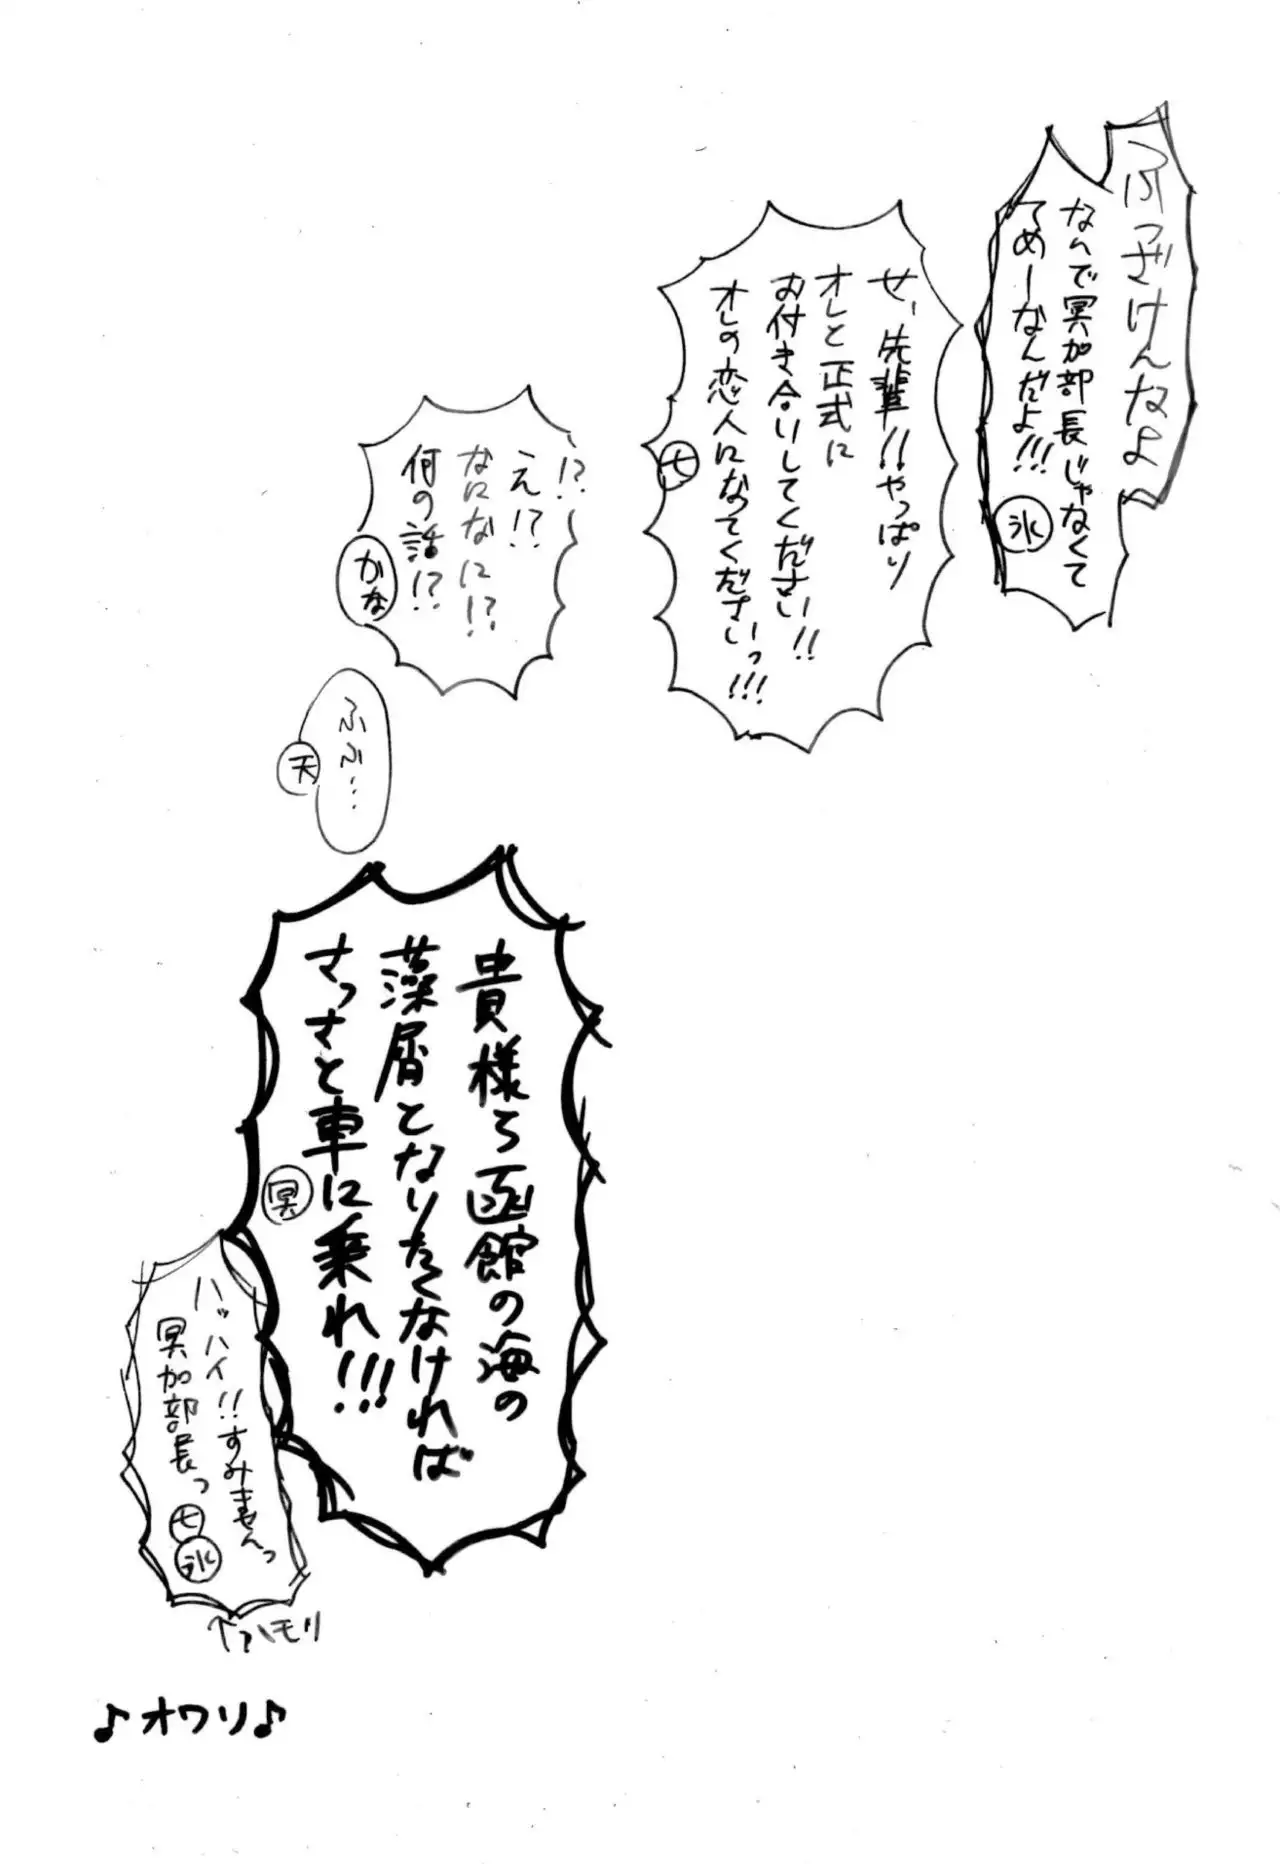 ふっざけんなよ
なんで冥加部長じゃなくて
てめーなんだよ!!!
氷
せ、先輩!!やっぱり
オレと正式に
お付き合いしてください!!
オレの恋人になってくださいっ!!!
七
!?
え!?
なになに!?
何の話!?
かな
ふふ…
天
貴様ら函館の海の
藻屑となりたくなければ
さっさと車に乗れ!!!
冥
ハッハイ!!すみませんっ
冥加部長っ
七
氷
↑ハモリ
♪オワリ♪